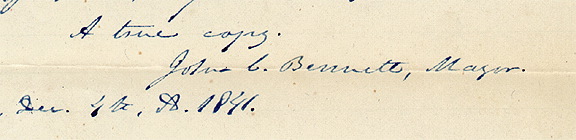 A true copy.
John C. Bennett, Mayor.
Dec. 4th, A. 1841.